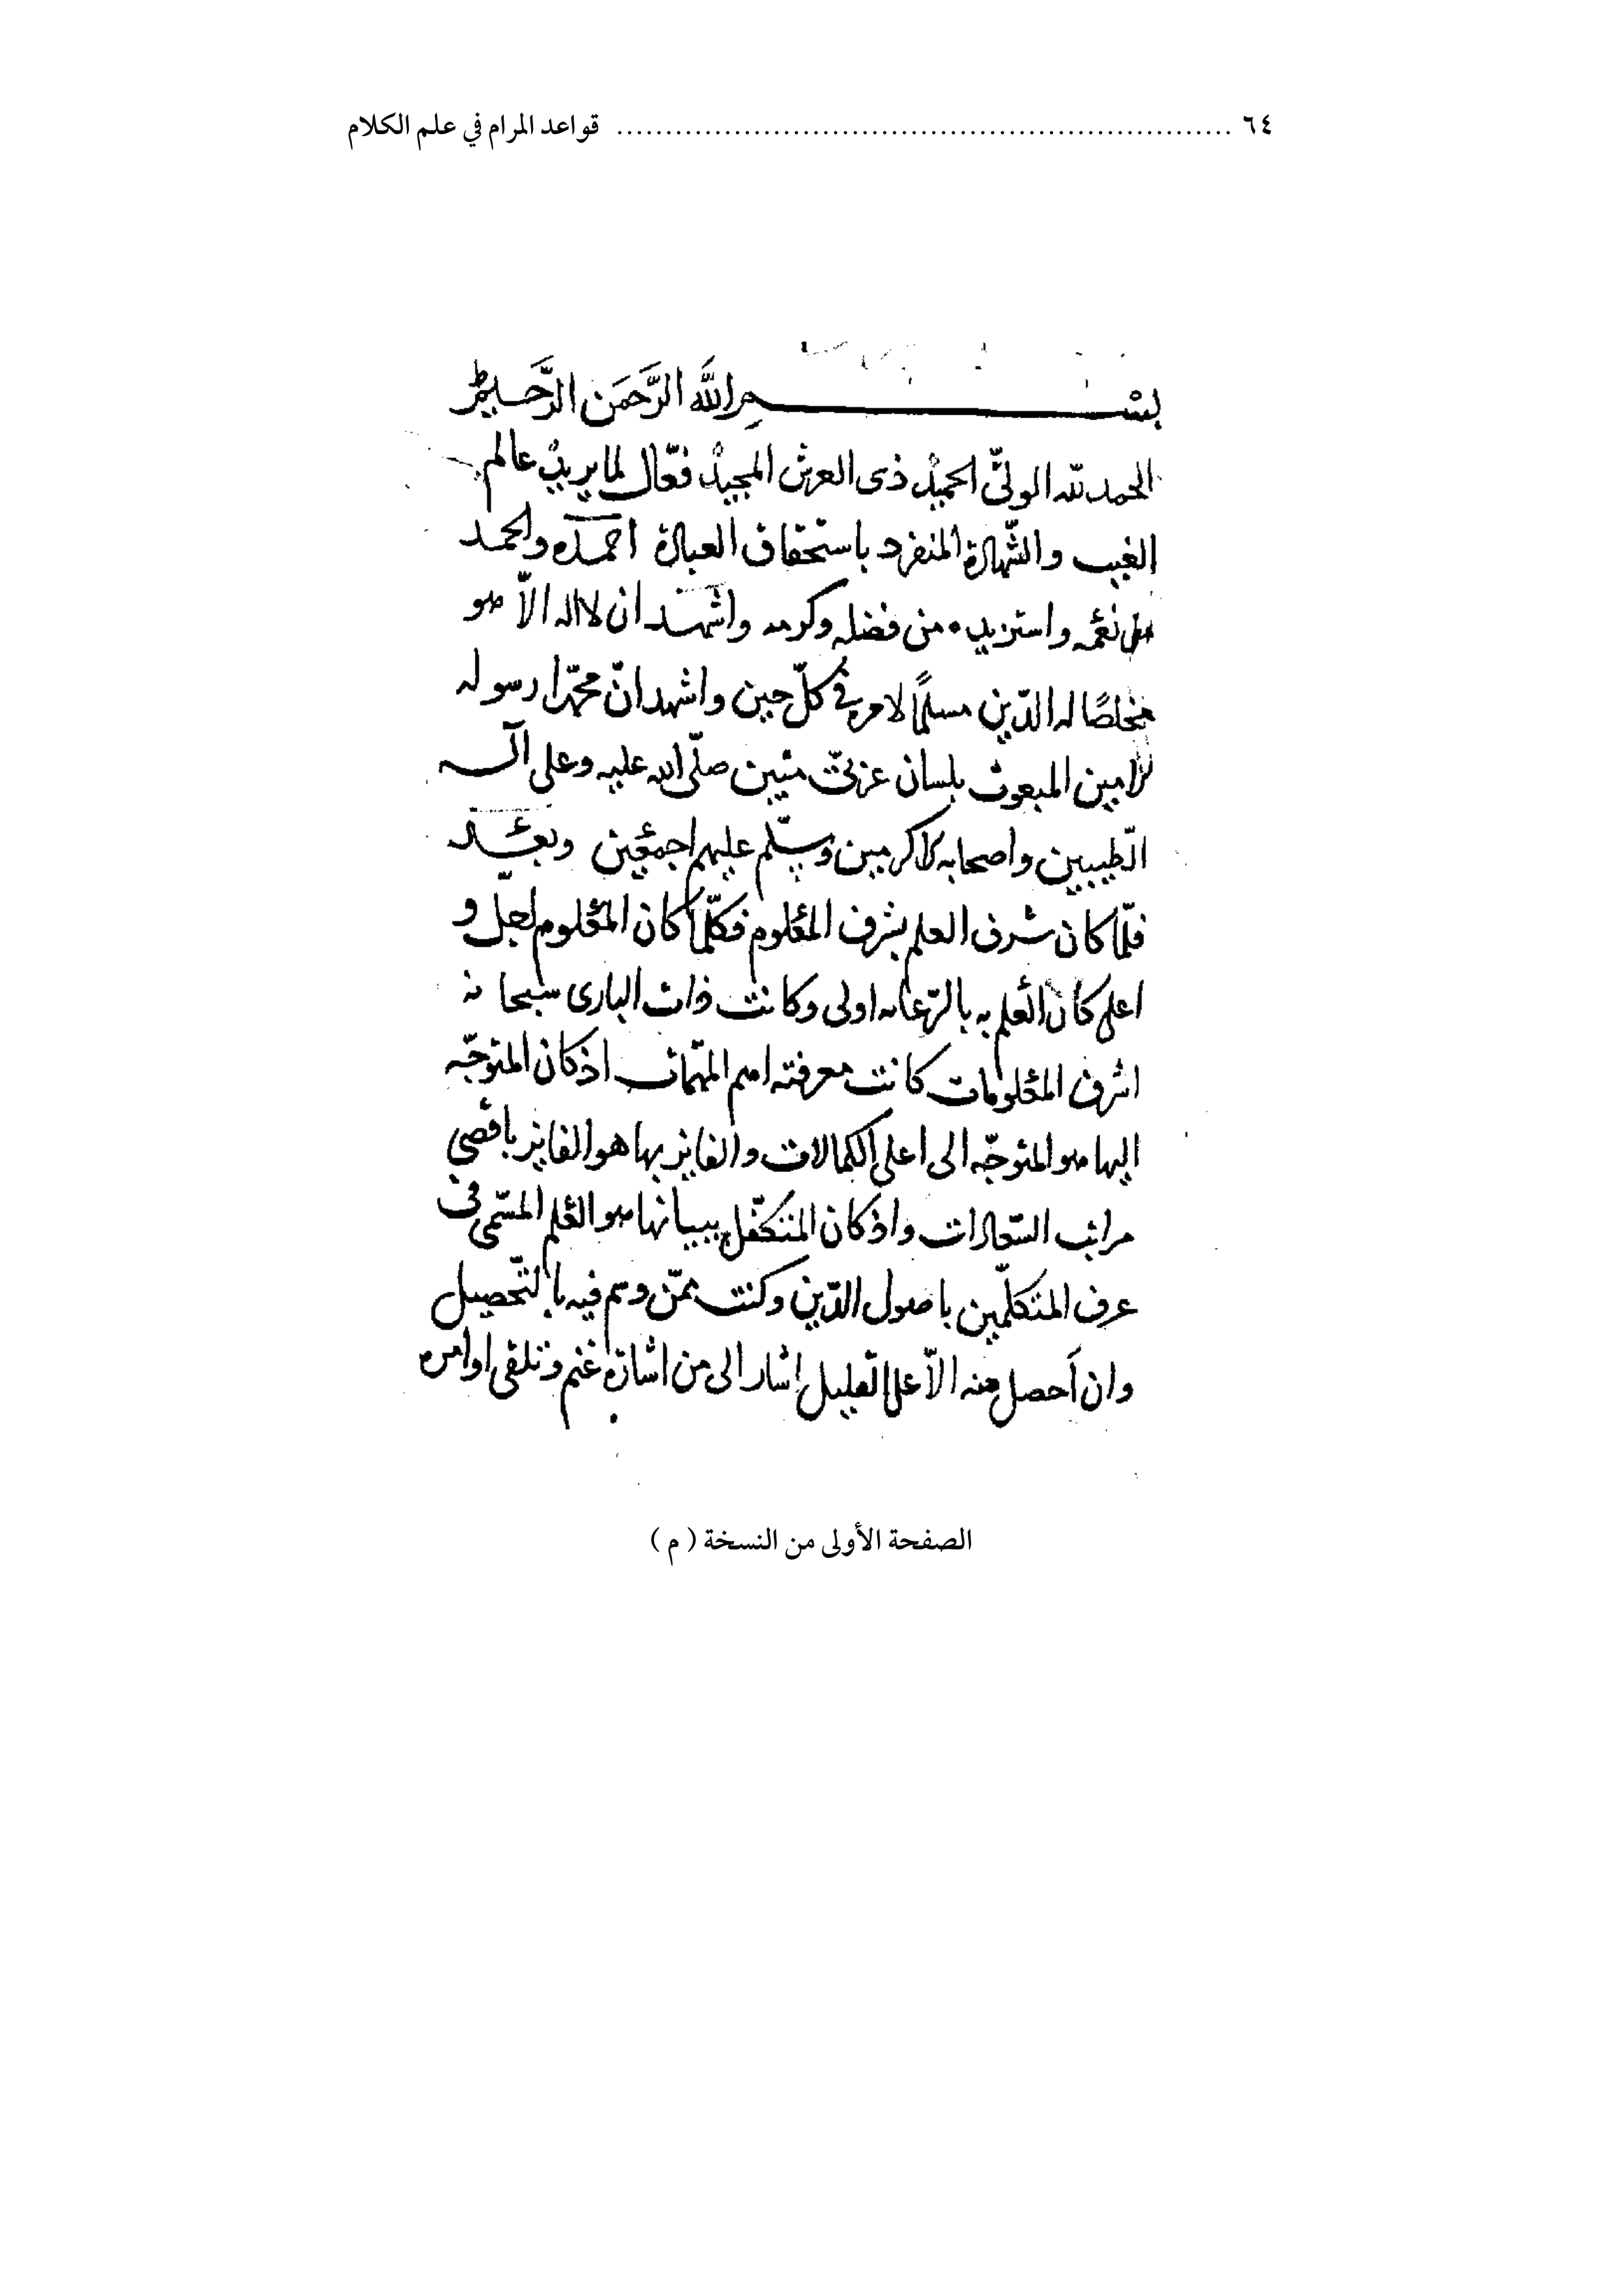 ٦٤ ............................................................... قواعد المرام في علم الكلام
بسم الله الرَّحمَن الرَّحيم
الحمد لله الولىّ الحميد ذى العرش المجيد فعّال لما يريد عالم
الغيب والشّهادة المنفرد باستحقاق العبادة احمده والحمد
من نعمه واستزيده من فضله وكرمه واشهد ان لا اله الاّ هو
مخلصًا له الدّين مسلمًا لامره فى كلّ حين واشهد انّ محمّدا رسوله
الامين المبعوث بلسان عربىّ مبين صلّى الله عليه وعلى آله
الطّيبين واصحابه الاكرمين وسلّم عليهم اجمعين وبعد
فلمّا كان شرف العلم بشرف المعلوم فكلّما كان المعلوم اجلّ و
اعلى كان العلم به بالرّعاىه اولى وكانت ذات البارى سبحانه
اشرف المعلومات كانت معرفته اهم المهمّات اذ كان المتوجّه
اليها هو المتوجّه الى اعلى الكمالات والفايز بها هو الفايز باقصى
مراتب السّعادات واذ كان المتكفّل ببيانها هو العلم المسّمى فى
عرف المتكلّمين باصول الدّين وكنت ممّن وسم فيه بالتّحصيل
وان لَم احصل منه الاّ على القليل اشار الى من اشارته غنم وتلقى اوامره
الصفحة الأولى من النسخة ( م )